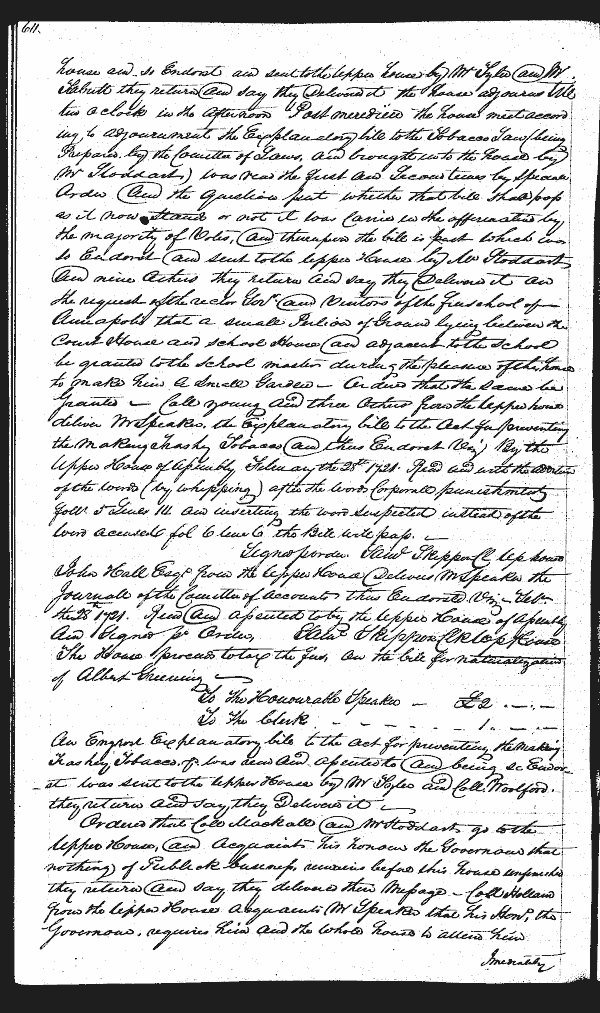 611.
house and so Endorst and sent to the upper house by Mr Tyler and Mr
they return and say they Delivered it the house adjourns till
two a clock in the afternoon Post meredien the house meet accord
ing to adjournment the Explanatory bill to the Tobacco Law (being
Prepared by the Comittee of Laws, and brought into the house by
Mr Stoddart) was read the first and Second times by special
Order And the question put whether that bill shall pass
as it now stands or not it was Carried in the affermative by
the majority of Votes, and thereupon the bill is past which was
so Endorst and sent to the upper House by Mr Stoddart
and nine others they return and say they Delivered it and
the request of the rector Govr and Visitors of the free school of
Annapolis that a small Portion of Ground lying between the
Court House and school House and adjacent to the School
be granted to the school master during the pleasure of the house
to make him a Small Garden — Ordered that the same be
Granted — Coll Young and three others from the upper house
deliver Mr Speaker, the Explanatory bill to the Act for preventing
the making trashy Tobacco and thus Endorst Viz) By the
upper House of Assembly February the 28th 1721. Read and with the addition
of the words (by whipping) after the words Corporale punishment
foll 5 Lines 111 and inserting the word suspected instead of the
word accused fol 6 line 6 the Bill will pass. —
Signed p order Saml Skippon Cl up house
John Hall Esqr from the upper House Delivers Mr Speaker the
Journale of the Comittee of Accounts thus Endorsed Viz — Febr
the 28th 1721. Read and assented to by the upper House of Assembly
And Signed pr Order, Saml Skippon Clk up House
The House proceed to tax the fees, on the bill for naturalization
of Albert Greening —
To The Honourable Speaker — £2 . — . —
To The Clerk - - - - - 1 . — . —
An Engrost Explanatory bill to the Act for preventing the making
Trashey Tobacco &c was read and assented to and being so Endor-
st was sent to the upper House by Mr Tyler and Coll Woolford.
they return and say they Delivered it —
Ordered that Coll Mackall and Mr Stoddart go to the
upper House, and Acquaint his honour the Governour that
nothing of Publick business remains before this house unfinished
they return and say they delivered their Message — Coll Holland
from the upper House acquaints Mr Speaker that his Honr the
Governour, requires him and the whole house to attend him
Imediately